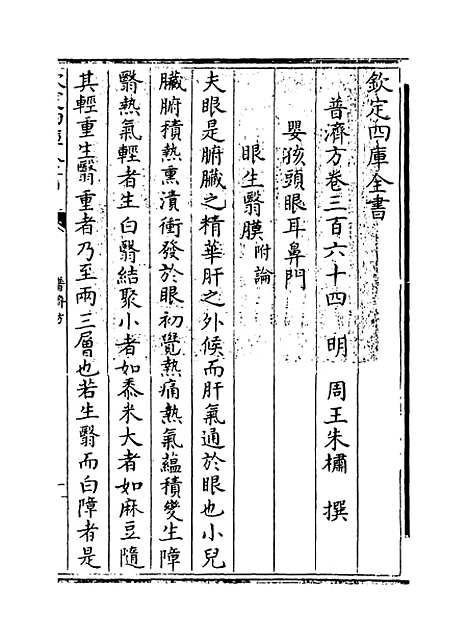 欽定四庫全書
普濟方卷三百六十四 明 周王朱橚 撰
嬰孩頭眼耳鼻門
眼生翳膜附論
夫眼是腑臟之精華肝之外候而肝氣通於眼也小兒
臟腑積熱熏漬衝發於眼初覺熱痛熱氣蘊積變生障
翳熱氣輕者生白翳結聚小者如黍米大者如麻豆隨
其輕重生翳重者乃至兩三層也若生翳而白障者是
普濟方